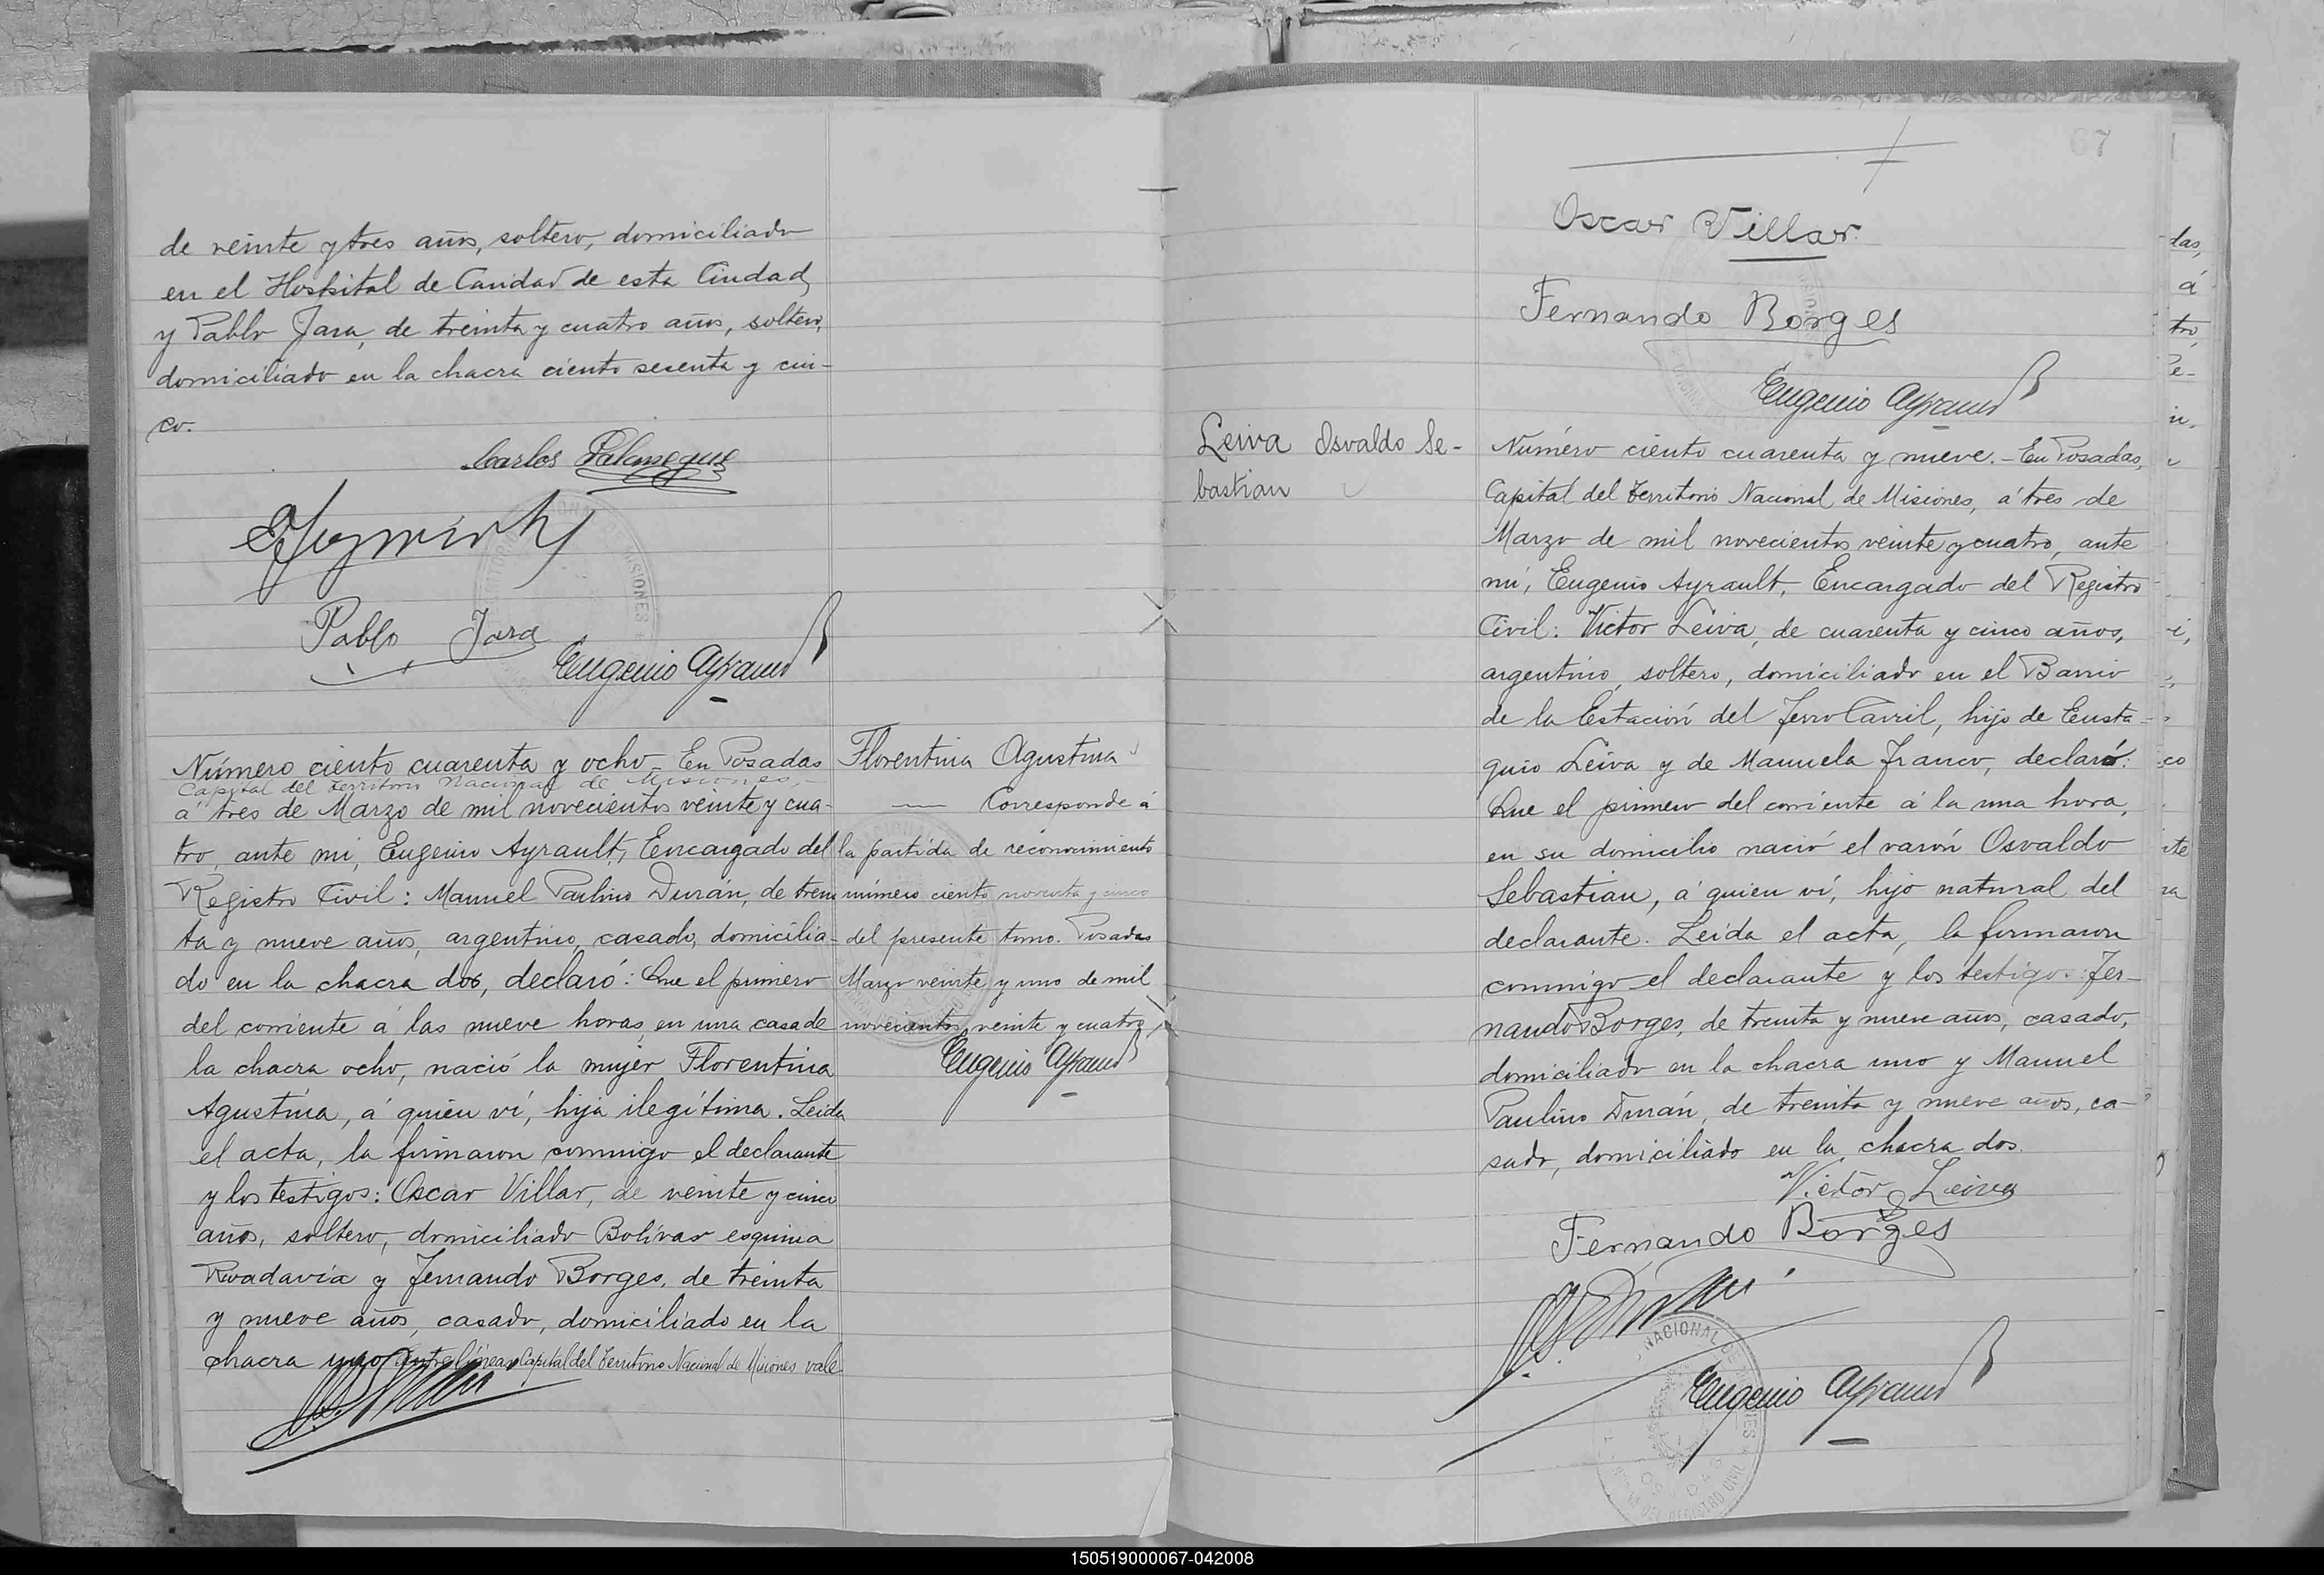 de veinte y tres años, soltero, domiciliado
en el Hospital de Caridad de esta Ciudad,
y Pablo Jara, de treinta y cuatro años, soltero,
domiciliado en la chacra ciento sesenta y cin-
co.
Carlos
Pablo Jara
Eugenio Ayrault
Número ciento cuarenta y ocho - En Posadas
Capital del Territorio Nacional de Misiones,
á tres de Marzo de mil novecientos veinte y cua-
tro, ante mi, Eugenio Ayrault, Encargado del
Registro Civil: Manuel Paulino Durán, de trein
ta y nueve años, argentino, casado, domicilia-
do en la chacra dos, declaró: Que el primero
del corriente á las nueve horas, en una casa de
la chacra ocho, nació la mujer Florentina
Agustina, á quien ví, hija ilegítima. Leida
el acta, la firmaron conmigo el declarante
y los testigos: Oscar Villar, de veinte y cinco
años, soltero, domiciliado Bolívar esquina
Rivadavia y Fernando Borges, de treinta
y nueve años, casado, domiciliado en la
chacra uno, entre líneas Capital del Territorio Nacional de Misiones vale
Florentina Agustina
Corresponde á
la partida de reconocimiento
número ciento noventa y cinco
del presente tomo. Posadas
Marzo veinte y uno de mil
novecientos veinte y cuatro
Eugenio Ayrault
67
Oscar Villar
Fernando Borges
Eugenio Ayrault
Leiva Osvaldo Se-
bastian
Número ciento cuarenta y nueve. - En Posadas,
Capital del Territorio Nacional de Misiones, á tres de
Marzo de mil novecientos veinte y cuatro, ante
mi, Eugenio Ayrault, Encargado del Registro
Civil: Victor Leiva, de cuarenta y cinco años,
argentino, soltero, domiciliado en el Barrio
de la Estación del Ferro Carril, hijo de Eusta-
quio Leiva y de Manuela Franco, declaró:
Que el primero del corriente á la una hora,
en su domicilio nació el varón Osvaldo
Sebastian, á quien ví, hijo natural del
declarante. Leida el acta, la firmaron
conmigo el declarante y los testigos: Fer-
nando Borges, de treinta y nueve años, casado,
domiciliado en la chacra uno y Manuel
Paulino Durán, de treinta y nueve años, ca-
sado, domiciliado en la chacra dos.
Victor Leiva
Fernando Borges
Eugenio Ayrault
150519000067-042008